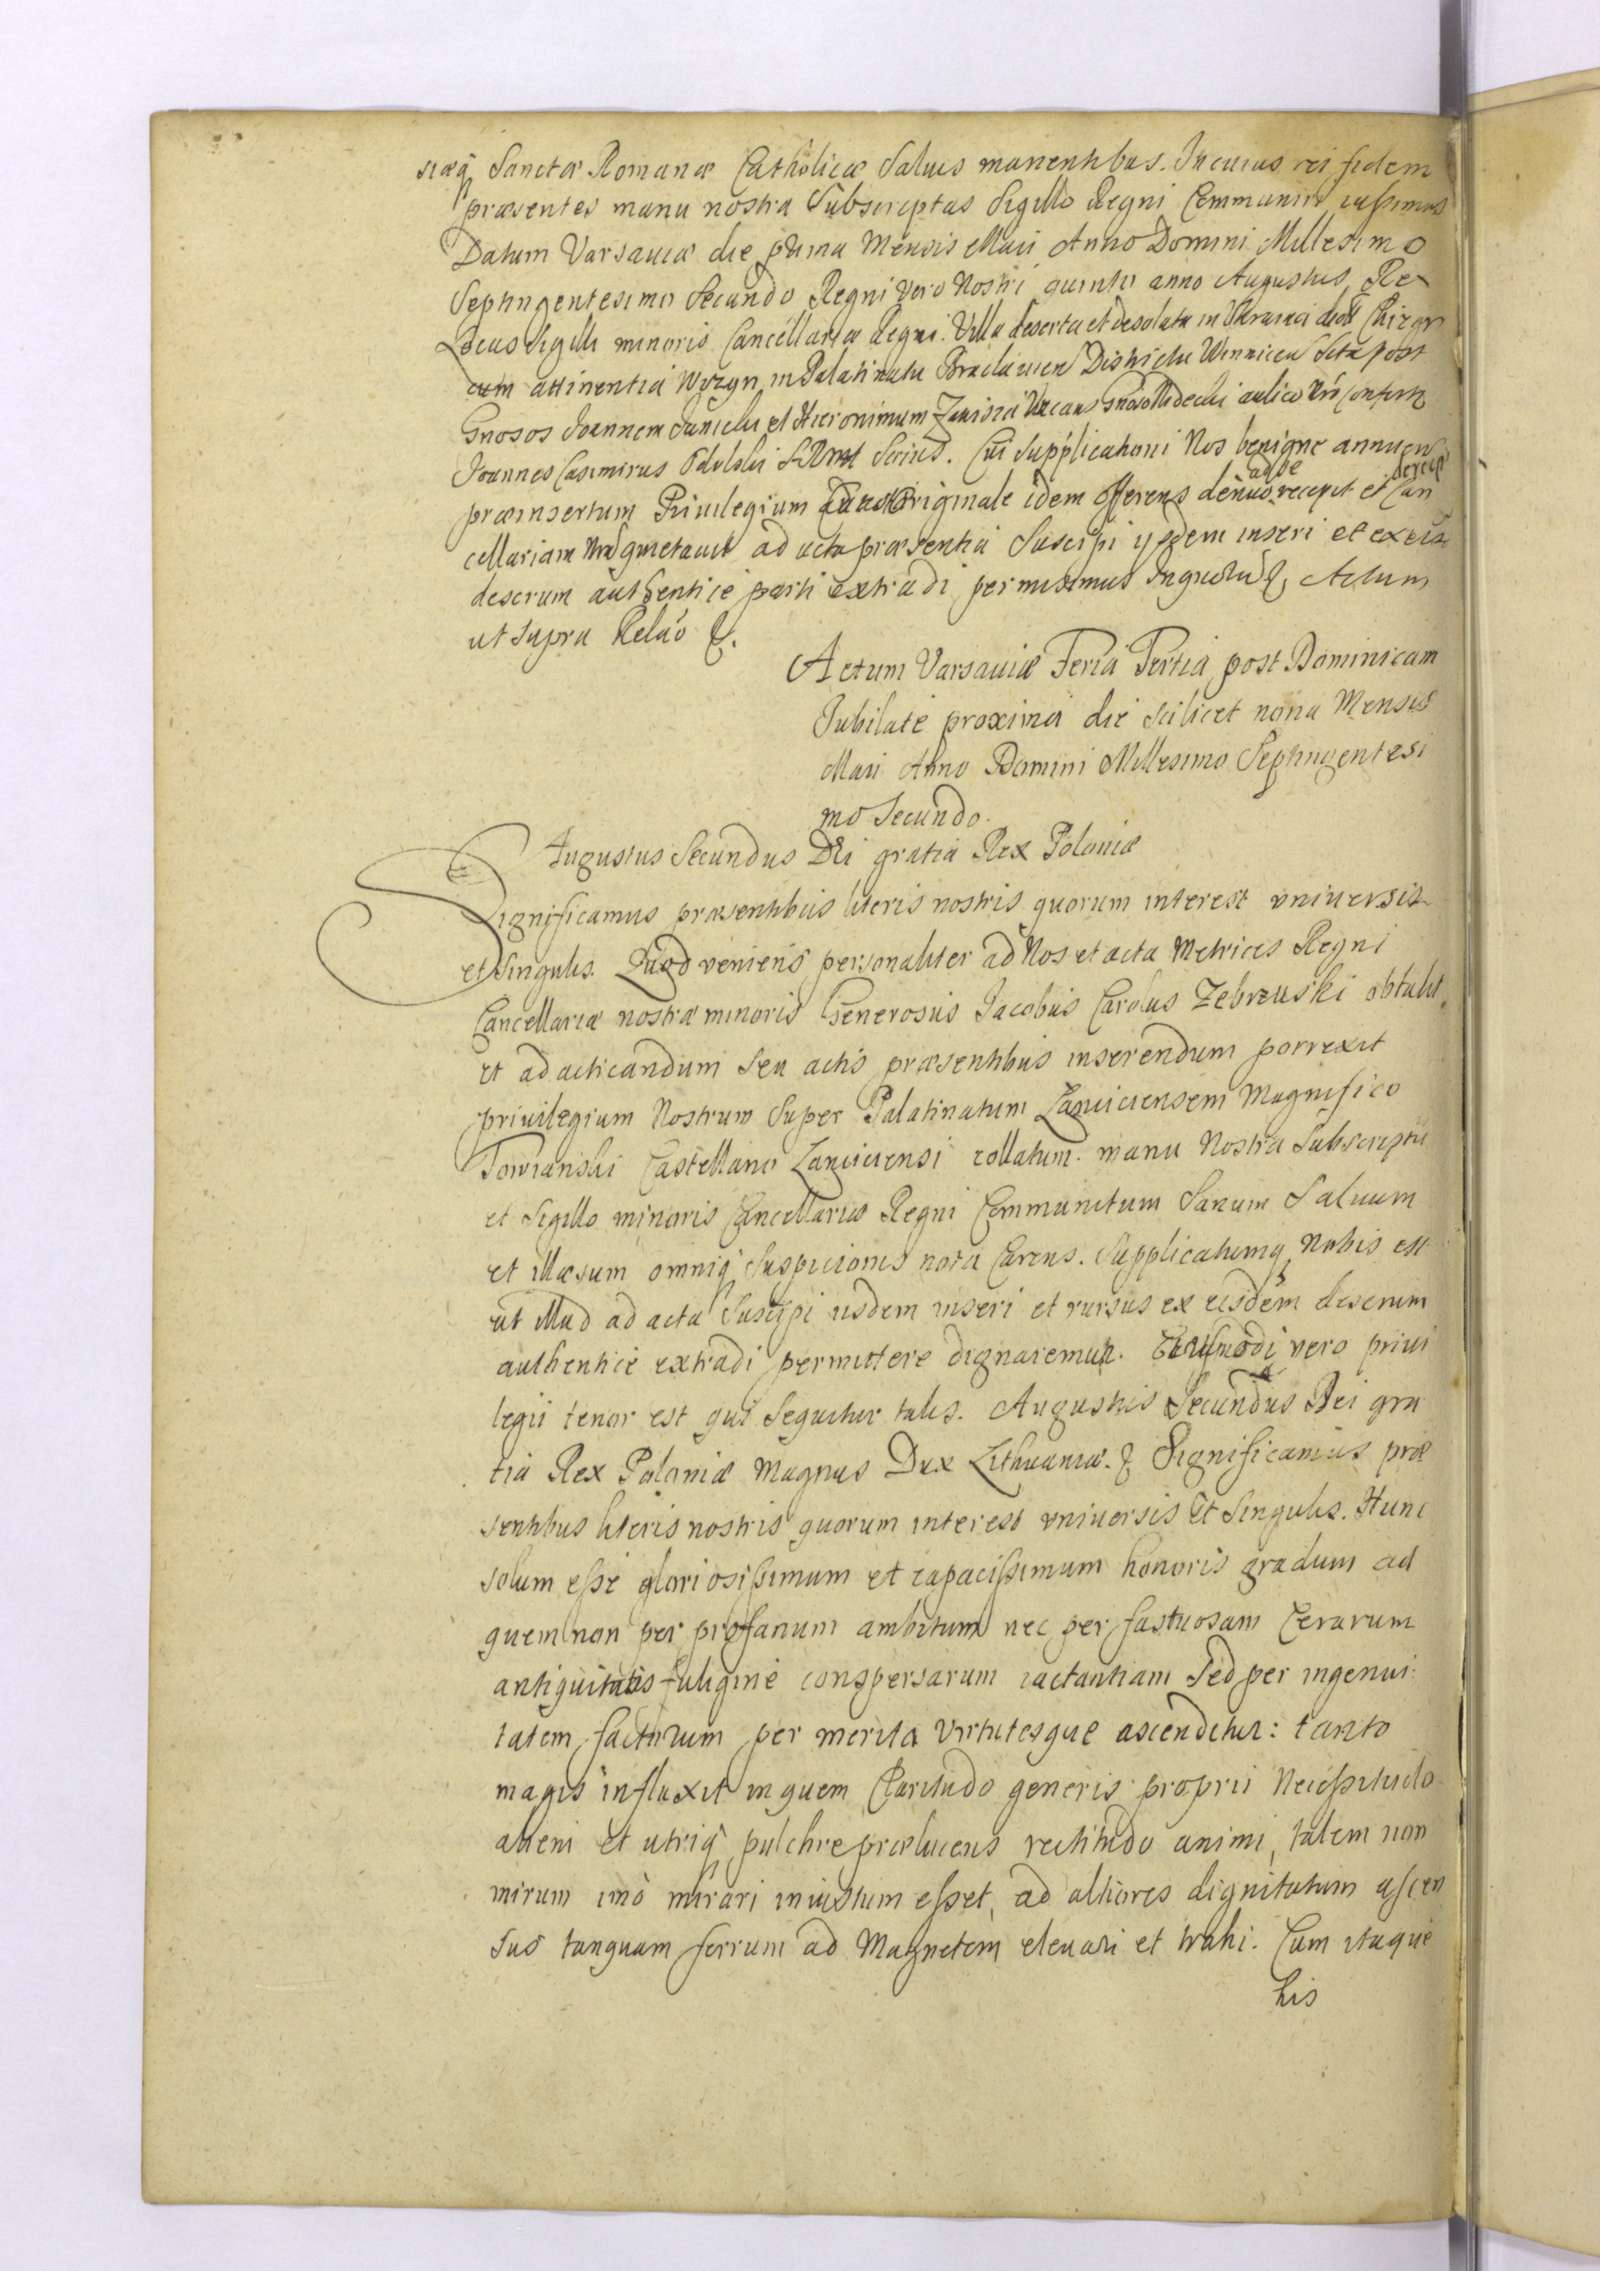 siæq Sanctæ Romanæ Catholicæ Salvis manentibus. In cuius rei fidem
præsentes manu nostra Subscriptas Sigillo Regni Communiri iussimus
Datum Varsaviæ die prima Mensis Maii Anno Domini Millesimo
Septingentesimo Secundo Regni vero Nostri quinto anno Augustus Rex
Locus Sigilli minoris Cancellariæ Regni. Villa deserta et desolata in Ukraina
cum attinentia Wozgn in Palatinatu Braclavien Districtu Winnicen Sita post
Gnosos Joannem Danielu et Hieronimum aulico Nro
Joannes Casimirus SRM Scrius. Cui Supplicationi Nos benigne annuen
præinsertum Privilegium Originale idem offerens denuo ad se recepit et de recep Can
cellariam Nram quietavit ad acta præsentia Suscipi ysdem inseri et ex eis
descrum authentice parti extradi permisimus Actum
ut Supra Relao &.
Actum Varsaviæ Feria Tertia post Dominicam
Jubilate proxima die scilicet nona Mensis
Maii Anno Domini Millesimo Septingentesi
mo Secundo.
Augustus Secundus Dei gratia Rex Poloniæ
Significamus præsentibus literis nostris quorum interest universis
et Singulis. Quod veniens personaliter ad Nos et acta Metrices Regni
Cancellariæ nostræ minoris Generosus Jacobus Carolus Zebrzuski obtulit
et ad acticandum Seu actis præsentibus inserendum porrexit
privilegium Nostrum Super Palatinatum Lanciciensem Magnifico
Towianski Castellano Lanciciensi collatum. manu Nostra Subscriptu
et Sigillo minoris Cancellariæ Regni Communitum Sanum Salvum
et illæsum omniq Suspicionis nota Carens. Supplicatumq Nobis est
ut illud ad acta Suscipi iisdem inseri et rursus ex eisdem descrum
authentice extradi permittere dignaremur. Eiusmodi vero privi
legii tenor est qui Sequitur talis. Augustus Secundus Dei gra
tia Rex Poloniæ Magnus Dux Lithuaniæ. & Significamus præ
sentibus literis nostris quorum interest universis et Singulis. Hunc
solum esse gloriosissimum et capacissimum honoris gradum ad
quem non per profanum ambitum nec per fastuosam Cerarum
antiquitatis fuligine conspersarum iactantiam Sed per ingenui
tatem factorum per merita virtutesque ascenditur: tanto
magis influxit in quem Claritudo generis proprii Necessitudo
alieni et utriq pulchre prælucens rectitudo animi, talem non
mirum imo mirari iniustum esset, ad altiores dignitatum ascen
sus tanquam ferrum ad Magnetem elevari et trahi. Cum itaque
his